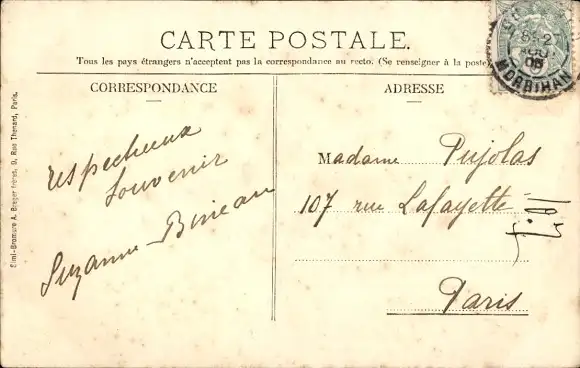 CARTE POSTALE.
Tous les pays étrangers n'acceptent pas la correspondance au recto. (Se renseigner à la poste)
CORRESPONDANCE
respectueux
souvenir
Suzanne Bineau
ADRESSE
Madame Pujolas
107 rue Lafayette
Paris
MORBIHAN
Simi-Bromure A. Breger frères, 9, Rue Thenard, Paris.